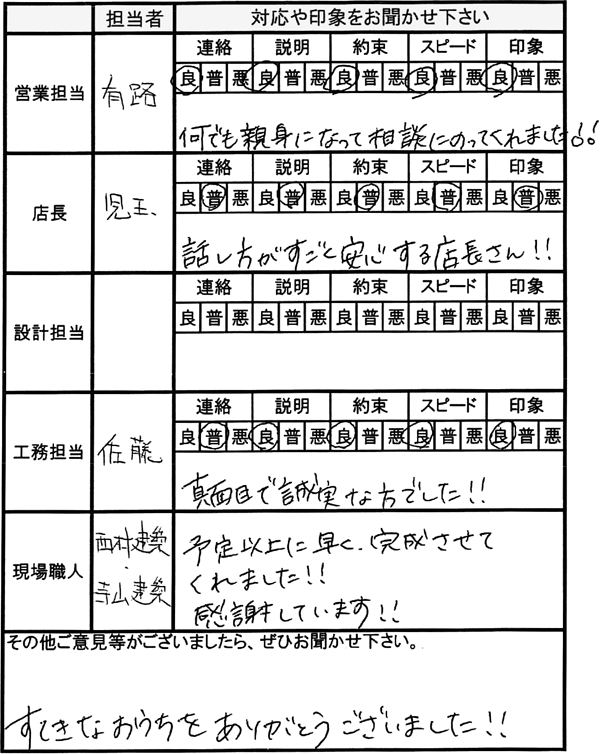 担当者 対応や印象をお聞かせ下さい
営業担当 有路
連絡 説明 約束 スピード 印象
良 普 悪 良 普 悪 良 普 悪 良 普 悪 良 普 悪
何でも親身になって相談にのってくれました!!
店長 児玉
連絡 説明 約束 スピード 印象
良 普 悪 良 普 悪 良 普 悪 良 普 悪 良 普 悪
話し方がすごく安心する店長さん!!
設計担当
連絡 説明 約束 スピード 印象
良 普 悪 良 普 悪 良 普 悪 良 普 悪 良 普 悪
工務担当 佐藤
連絡 説明 約束 スピード 印象
良 普 悪 良 普 悪 良 普 悪 良 普 悪 良 普 悪
真面目で誠実な方でした!!
現場職人
西村建築
・
寺山建築
予定以上に早く、完成させて
くれました!!
感謝しています!!
その他ご意見等がございましたら、ぜひお聞かせ下さい。
すてきなおうちをありがとうございました!!